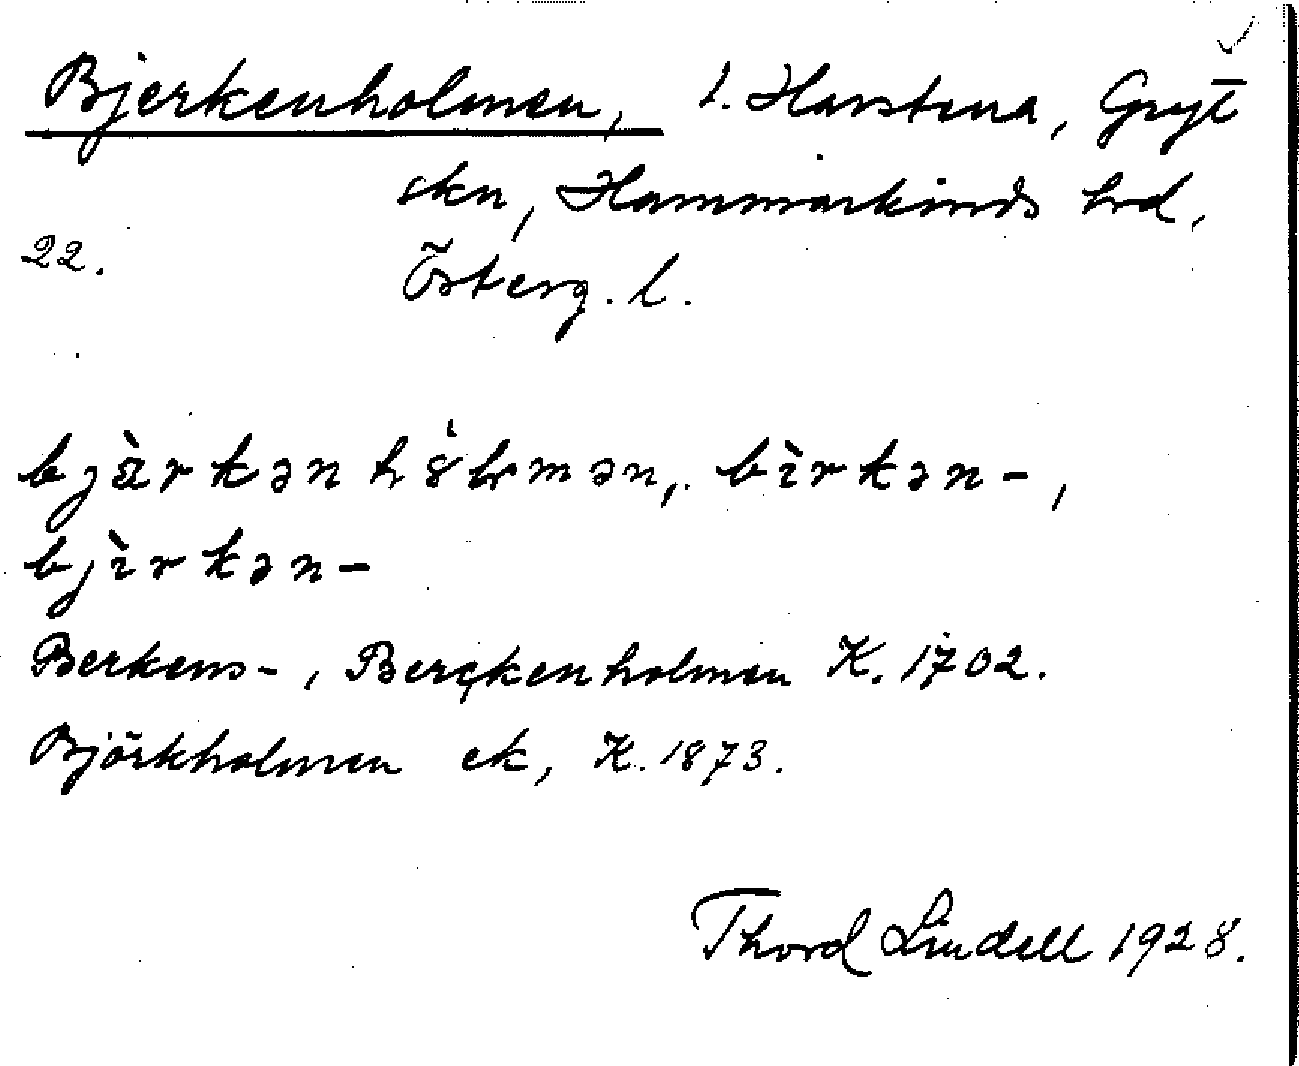 Bjerkenholmen, l. Harstena, Gryt
skn, Hammarkinds hrd,
22.
Österg. l.
bjàrkən hålmən, bìrkən-,
bjìrkən-
Berkens-, Berckenholmen K. 1702.
Björkholmen ek, K. 1873.
Thord Lindell 1928.